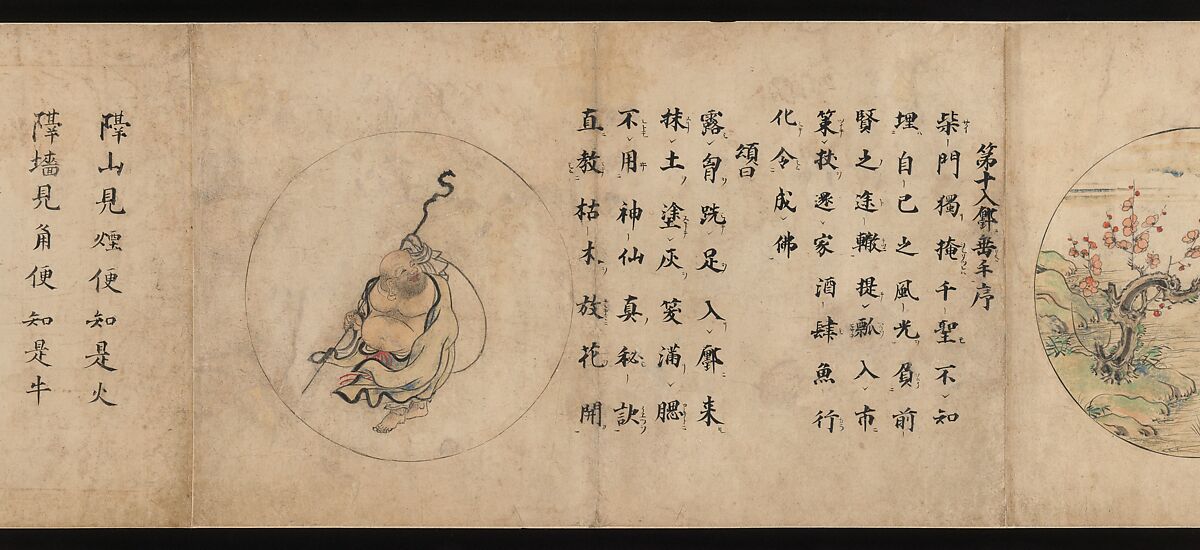 第十入鄽垂手序
柴門獨掩千聖不知
埋自己之風光負前
賢之途轍提瓢入市
策杖還家酒肆魚行
化令成佛
頌曰
露胷跣足入鄽来
抹土塗灰笑滿腮
不用神仙真秘訣
直教枯木放花開
隔山見煙便知是火
隔墻見角便知是牛